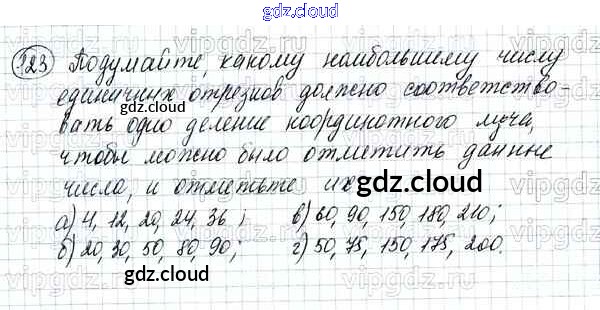 gdz.cloud
123 Подумайте, какому наибольшему числу
единичных отрезков должно соответство-
gdz.cloud
вать одно деление координатного луча,
чтобы можно было отметить данные
числа, и отметьте их
gdz.cloud
а) 4, 12, 20, 24, 36; в) 60, 90, 150, 180, 210;
gdz.cloud
б) 20, 30, 50, 80, 90; г) 50, 75, 150, 175, 200.
gdz.cloud